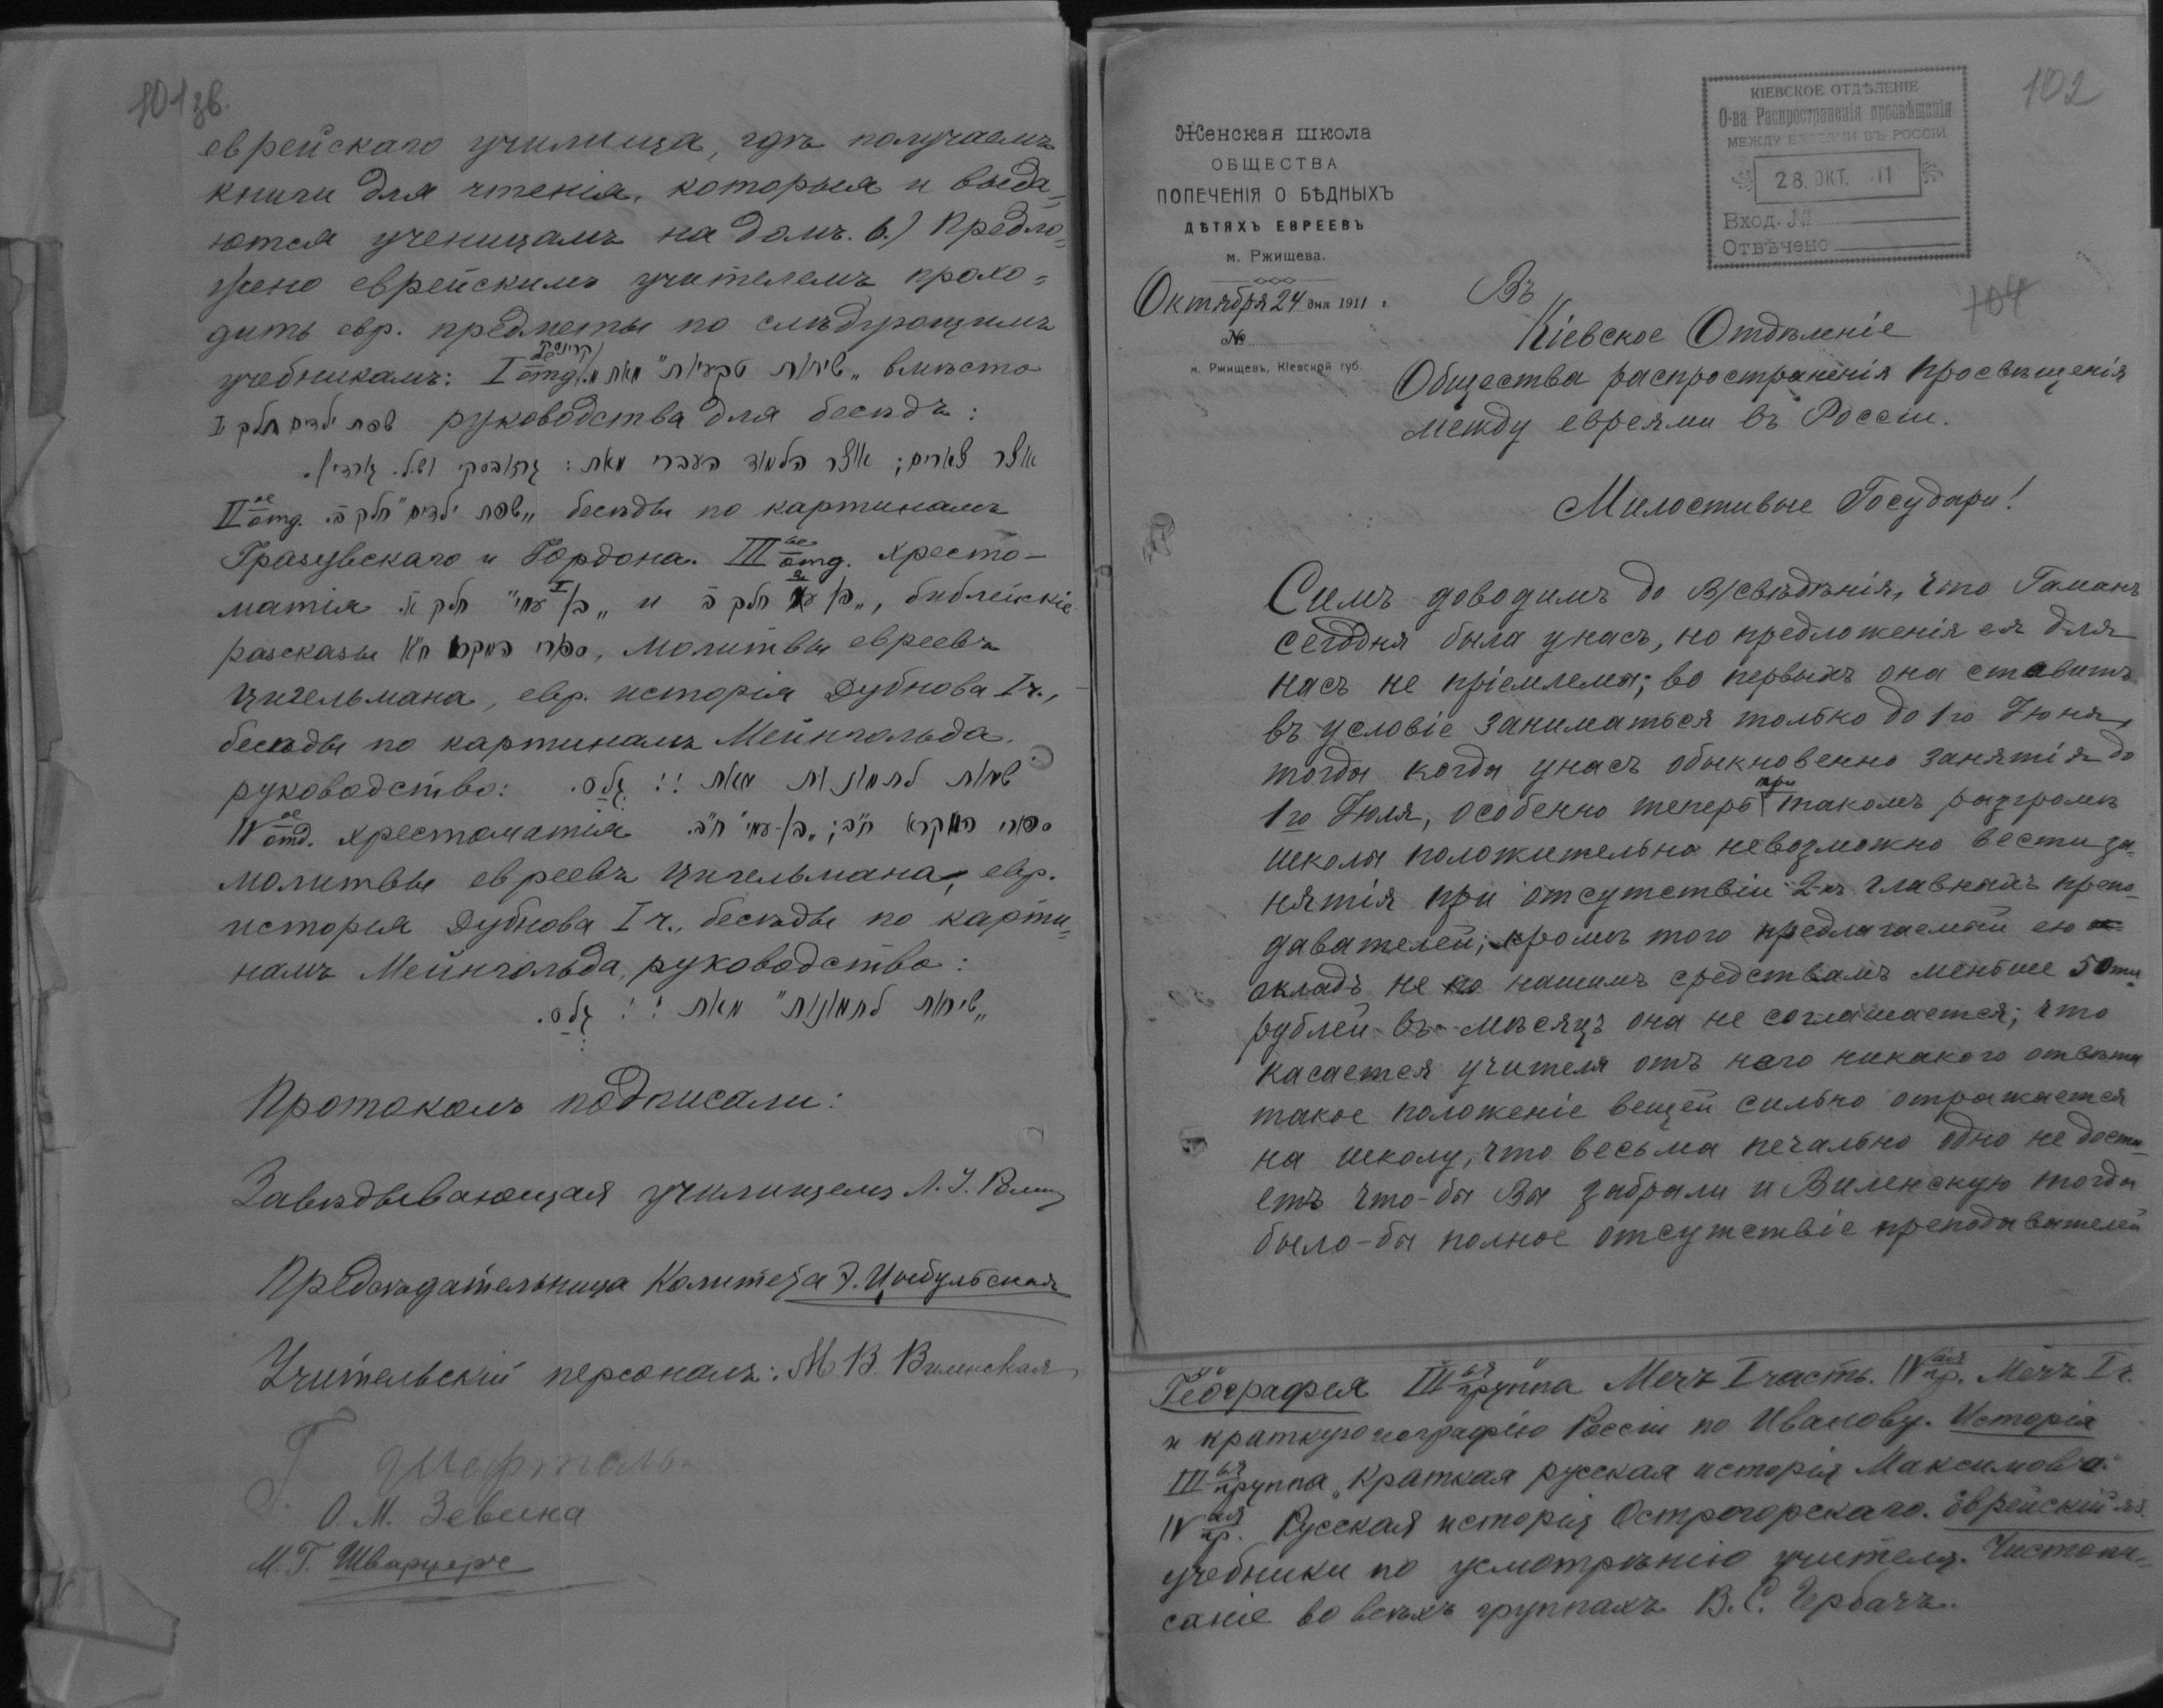 101зв.
еврейскаго училища, гдѣ получаемъ
книги для чтенія, которыя и выда=
ются ученицамъ на домъ. в.) Предло=
жено еврейскимъ учителемъ прохо=
дить евр. предметы по слѣдующимъ
учебникамъ: I ое отд. שיחות טבעיות" מאת вмѣсто
שפת ילדים חלק I руководства для бесѣдъ:
אוצר ציורים; אוצר הלמוד העברי מאת: גרזובסקי
II ое отд. „שפת ילדים" חלק ב'. бесѣды по картинамъ
Гразувскаго и Гордона. III ье отд. Хресто-
матія „בן עמי" חלק א'. и „בן עמי חלק ב", библейскіе
разсказы ספורי המקרא ח"א, молитвы евреевъ
Цигельмана, евр. исторія Дубнова I ч.,
бесѣды по картинамъ Мейнгольда.
руководство: שיחות לתמונות מאת
IV ое отд. хрестоматія ספורי המקרא ח"ב; „בן-עמי" ח"ב.
молитвы евреевъ Цигельмана, евр.
исторія Дубнова I ч., бесѣды по карти=
намъ Мейнгольда, руководство:
„שיחות לתמונות" מאת
Протоколъ подписали:
Завѣдывающая училищемъ Л. І.
Предсѣдательница Комитета Э. Цыбульская
Учительскій персоналъ: М. В. Виленская
О. М. Зевина
М. Г. Шварцерг
102
104
КІЕВСКОЕ ОТДѢЛЕНІЕ
О-ва Распространенія просвѣщенія
МЕЖДУ ЕВРЕЯМИ ВЪ РОССІИ
28. ОКТ. 11
Вход. №
Отвѣчено
Женская школа
ОБЩЕСТВА
ПОПЕЧЕНІЯ О БѢДНЫХЪ
ДѢТЯХЪ ЕВРЕЕВЪ
м. Ржищева.
Октября 24 дня 1911 г.
№
м. Ржищевъ, Кіевской губ.
Въ
Кіевское Отдѣленіе
Общества распространенія просвѣщенія
между евреями въ Россіи.
Милостивые Государи!
Симъ доводимъ до В/свѣдѣнія, что Гаманъ
сегодня была у насъ, но предложенія ея для
насъ не пріемлемы; во первыхъ она ставитъ
въ условіе заниматься только до 1го Іюня,
тогда когда у насъ обыкновенно занятія до
1го Іюля, особенно теперь при такомъ разгромѣ
школы положительно невозможно вести за-
нятія при отсутствіи 2-хъ главныхъ препо-
давателей; кромѣ того предлагаемый ею
окладъ не по нашимъ средствамъ меньше 50ти
рублей въ мѣсяцъ она не соглашается; что
касается учителя отъ него никакого отвѣта
такое положеніе вещей сильно отражается
на школу, что весьма печально одно не доста-
етъ что-бы Вы забрали и Виленскую тогда
было-бы полное отсутствіе преподавателей
Географія III ья группа Мечъ I часть. IV ая гр. Мечъ I ч.
и краткую географію Россіи по Иванову. Исторія
III ья группа „Краткая русская исторія Максимова.
IV ая гр. Русская исторія Острогорскаго. Еврейскій яз.
учебники по усмотрѣнію учителя. Чистопи-
саніе во всѣхъ группахъ В. С. Гербачъ.